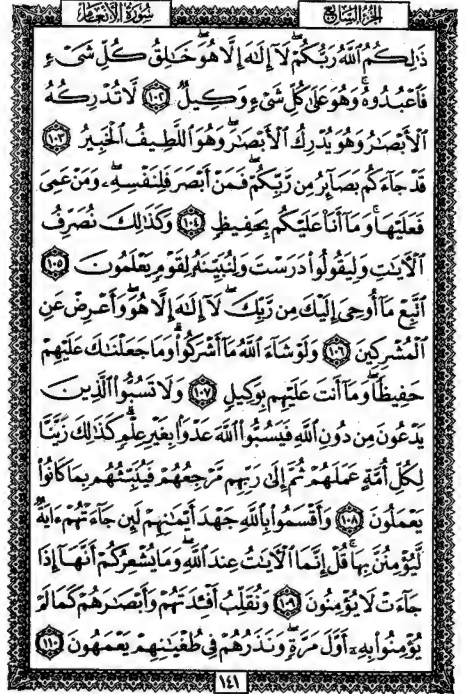 الجزء السابع سورة الأنعام
ذَٰلِكُمُ ٱللَّهُ رَبُّكُمْ ۖ لَآ إِلَٰهَ إِلَّا هُوَ ۖ خَٰلِقُ كُلِّ شَىْءٍ
فَٱعْبُدُوهُ ۚ وَهُوَ عَلَىٰ كُلِّ شَىْءٍ وَكِيلٌ ١٠٢ لَّا تُدْرِكُهُ
ٱلْأَبْصَٰرُ وَهُوَ يُدْرِكُ ٱلْأَبْصَٰرَ ۖ وَهُوَ ٱللَّطِيفُ ٱلْخَبِيرُ ١٠٣
قَدْ جَآءَكُم بَصَآئِرُ مِن رَّبِّكُمْ ۖ فَمَنْ أَبْصَرَ فَلِنَفْسِهِۦ ۖ وَمَنْ عَمِىَ
فَعَلَيْهَا ۚ وَمَآ أَنَا۠ عَلَيْكُم بِحَفِيظٍ ١٠٤ وَكَذَٰلِكَ نُصَرِّفُ
ٱلْـَٔايَٰتِ وَلِيَقُولُوا۟ دَرَسْتَ وَلِنُبَيِّنَهُۥ لِقَوْمٍ يَعْلَمُونَ ١٠٥
ٱتَّبِعْ مَآ أُوحِىَ إِلَيْكَ مِن رَّبِّكَ ۖ لَآ إِلَٰهَ إِلَّا هُوَ ۖ وَأَعْرِضْ عَنِ
ٱلْمُشْرِكِينَ ١٠٦ وَلَوْ شَآءَ ٱللَّهُ مَآ أَشْرَكُوا۟ ۗ وَمَا جَعَلْنَٰكَ عَلَيْهِمْ
حَفِيظًا ۖ وَمَآ أَنتَ عَلَيْهِم بِوَكِيلٍ ١٠٧ وَلَا تَسُبُّوا۟ ٱلَّذِينَ
يَدْعُونَ مِن دُونِ ٱللَّهِ فَيَسُبُّوا۟ ٱللَّهَ عَدْوًۢا بِغَيْرِ عِلْمٍ ۗ كَذَٰلِكَ زَيَّنَّا
لِكُلِّ أُمَّةٍ عَمَلَهُمْ ثُمَّ إِلَىٰ رَبِّهِم مَّرْجِعُهُمْ فَيُنَبِّئُهُم بِمَا كَانُوا۟
يَعْمَلُونَ ١٠٨ وَأَقْسَمُوا۟ بِٱللَّهِ جَهْدَ أَيْمَٰنِهِمْ لَئِن جَآءَتْهُمْ ءَايَةٌ
لَّيُؤْمِنُنَّ بِهَا ۚ قُلْ إِنَّمَا ٱلْـَٔايَٰتُ عِندَ ٱللَّهِ ۖ وَمَا يُشْعِرُكُمْ أَنَّهَآ إِذَا
جَآءَتْ لَا يُؤْمِنُونَ ١٠٩ وَنُقَلِّبُ أَفْـِٔدَتَهُمْ وَأَبْصَٰرَهُمْ كَمَا لَمْ
يُؤْمِنُوا۟ بِهِۦٓ أَوَّلَ مَرَّةٍ وَنَذَرُهُمْ فِى طُغْيَٰنِهِمْ يَعْمَهُونَ ١١٠
١٤١